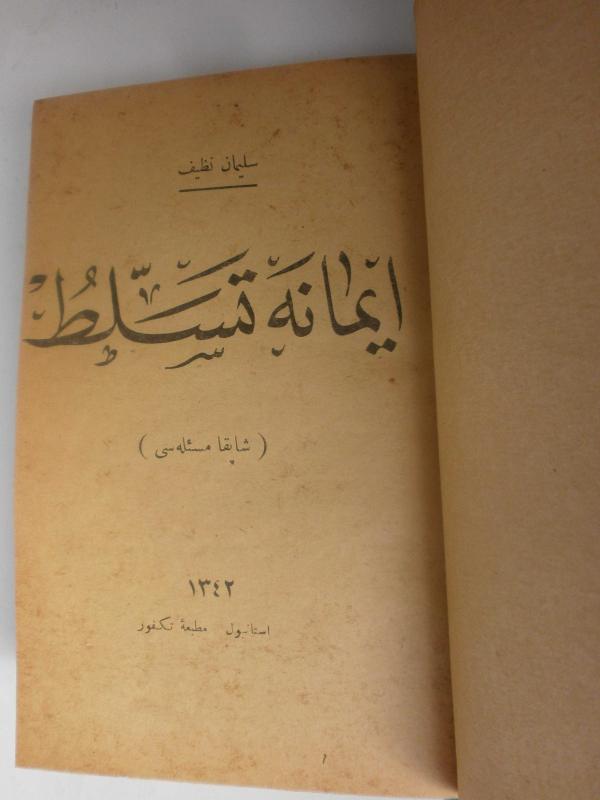 سلیمان نظیف
ایمانه تسلّط
( شاپقا مسئله‌سی )
١٣٤٢
استانبول مطبعهٔ تكفور